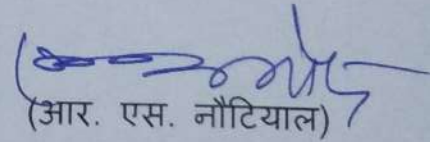 (आर. एस. नौटियाल)